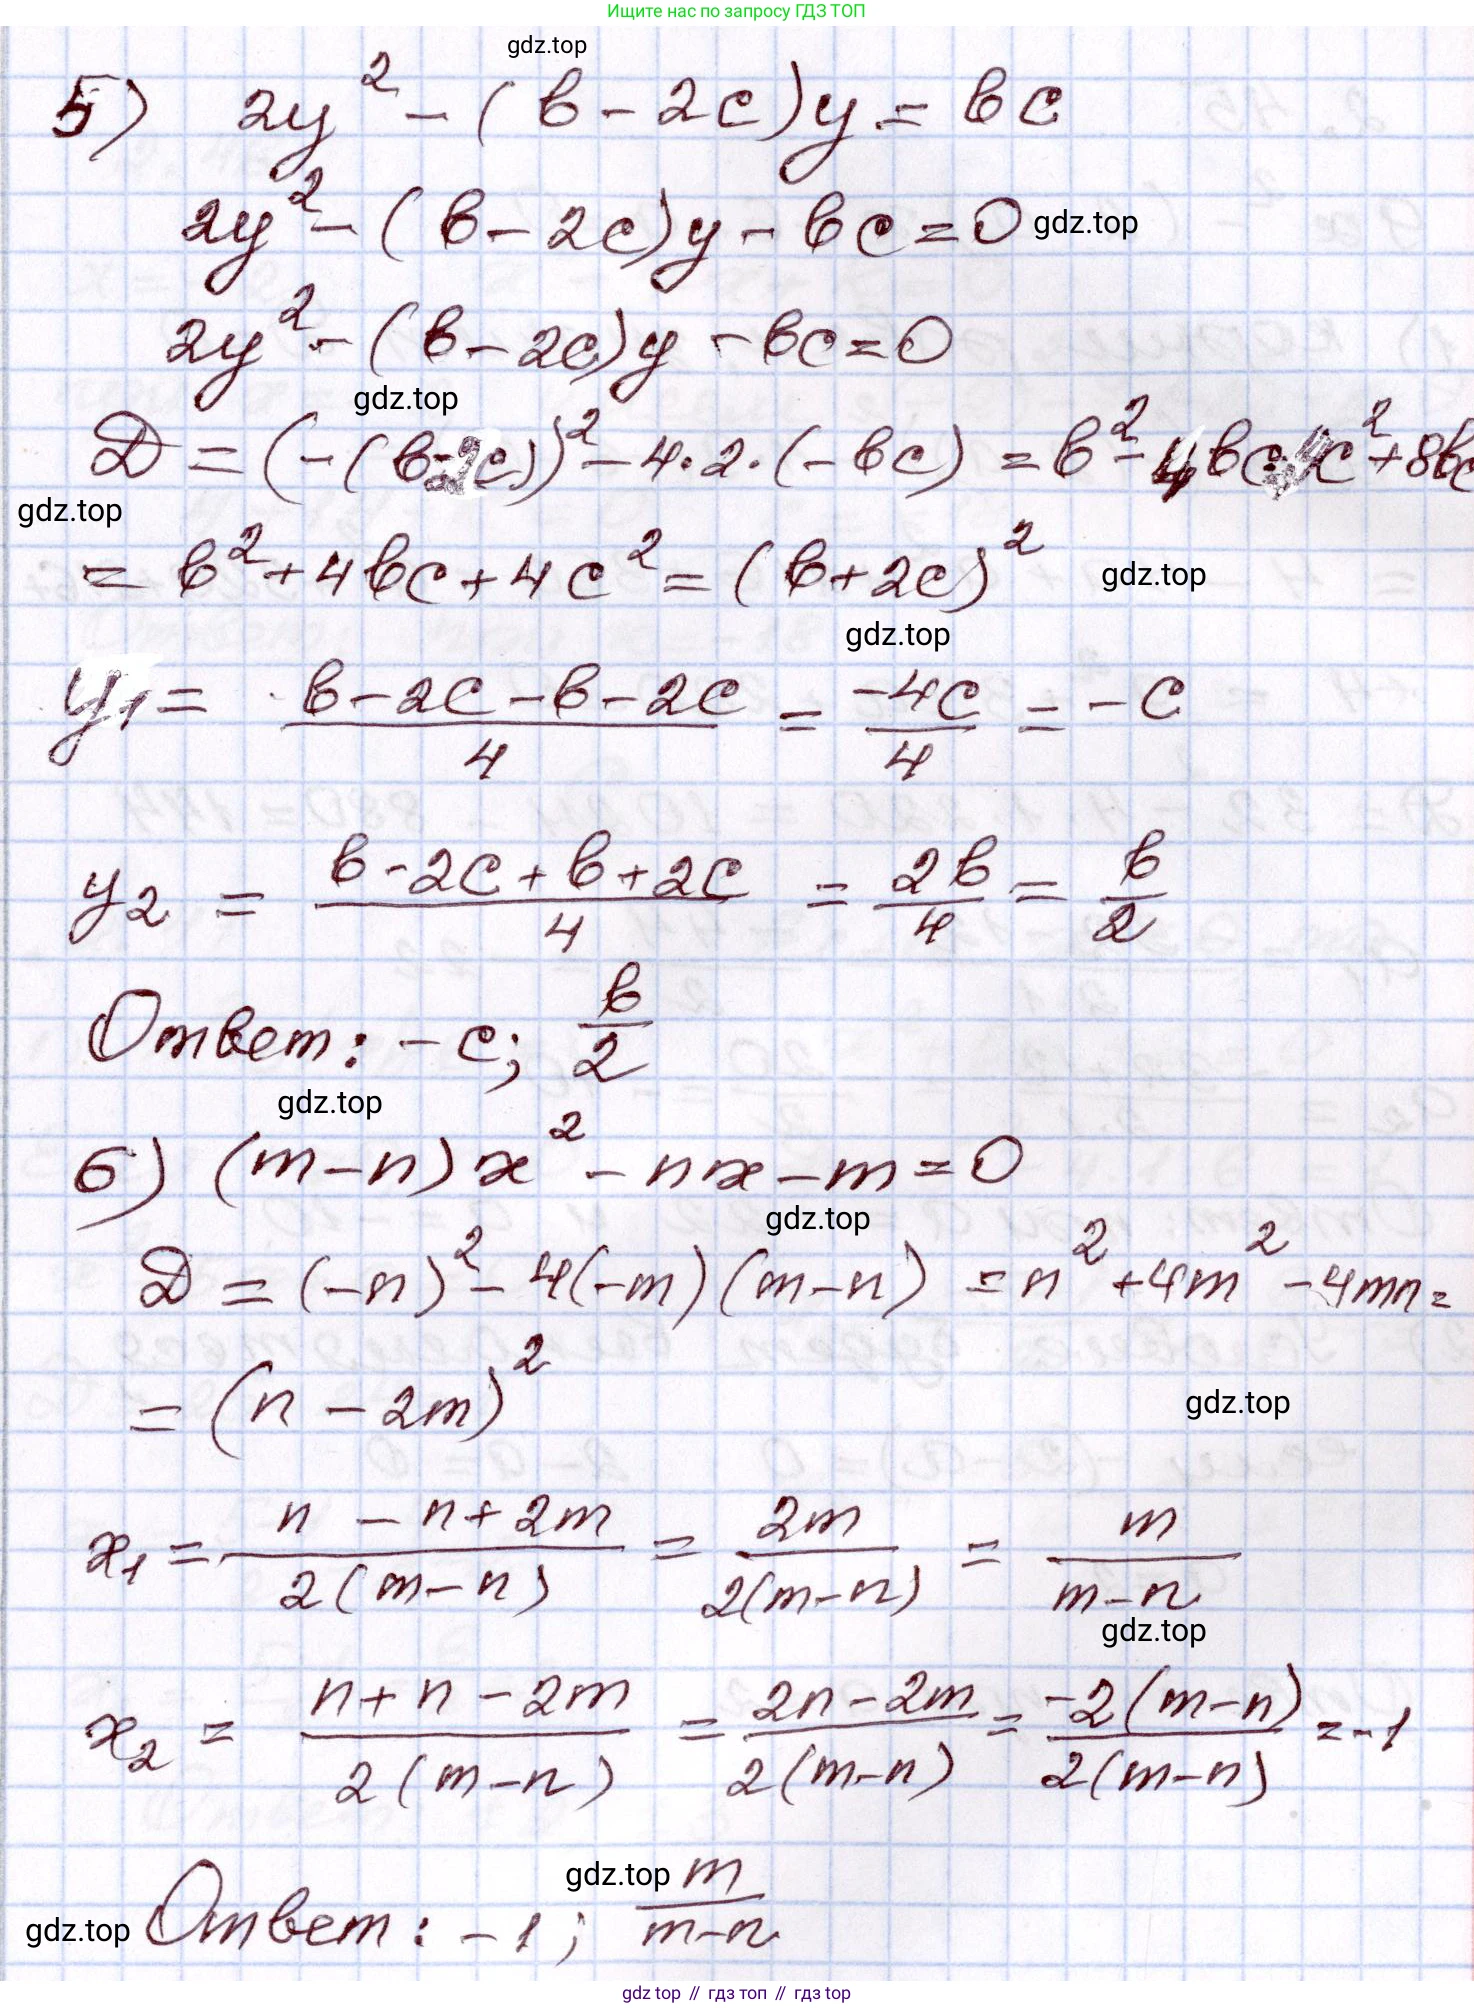 Ищите нас по запросу ГДЗ ТОП
gdz.top
5) 2y² - (b - 2c)y = bc
2y² - (b - 2c)y - bc = 0 gdz.top
2y² - (b - 2c)y - bc = 0
gdz.top
D = (-(b-2c))² - 4·2·(-bc) = b² - 4bc + 4c² + 8bc
gdz.top
= b² + 4bc + 4c² = (b + 2c)² gdz.top
gdz.top
y₁ = (b - 2c - b - 2c)/4 = -4c/4 = -c
y₂ = (b - 2c + b + 2c)/4 = 2b/4 = b/2
Ответ: -c; b/2
gdz.top
6) (m - n)x² - nx - m = 0
gdz.top
D = (-n)² - 4(-m)(m - n) = n² + 4m² - 4mn =
= (n - 2m)²
gdz.top
x₁ = (n - n + 2m)/(2(m - n)) = 2m/(2(m - n)) = m/(m - n)
gdz.top
x₂ = (n + n - 2m)/(2(m - n)) = (2n - 2m)/(2(m - n)) = -2(m - n)/(2(m - n)) = -1
gdz.top
gdz.top Ответ: -1; m/(m - n)
gdz.top // гдз топ // гдз top